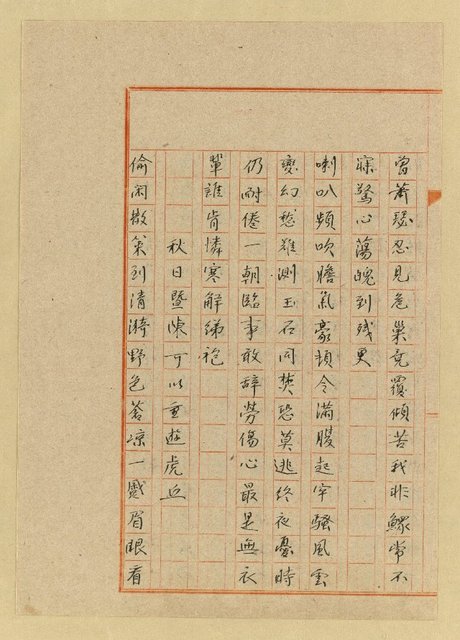 曾蕭瑟忍見危巢竟覆傾苦我非鰥常不
寐驚心蕩魄到殘更
喇叭頻吹膽氣豪頓令滿腹起牢騷風雲
變幻愁難測玉石同焚恐莫逃終夜憂時
仍耐倦一朝臨事敢辭勞傷心最是無衣
輩誰肯憐寒解綈袍
秋日暨陳可以重遊虎丘
偷閑散策到清漪野色蒼凉一蹙眉眼看